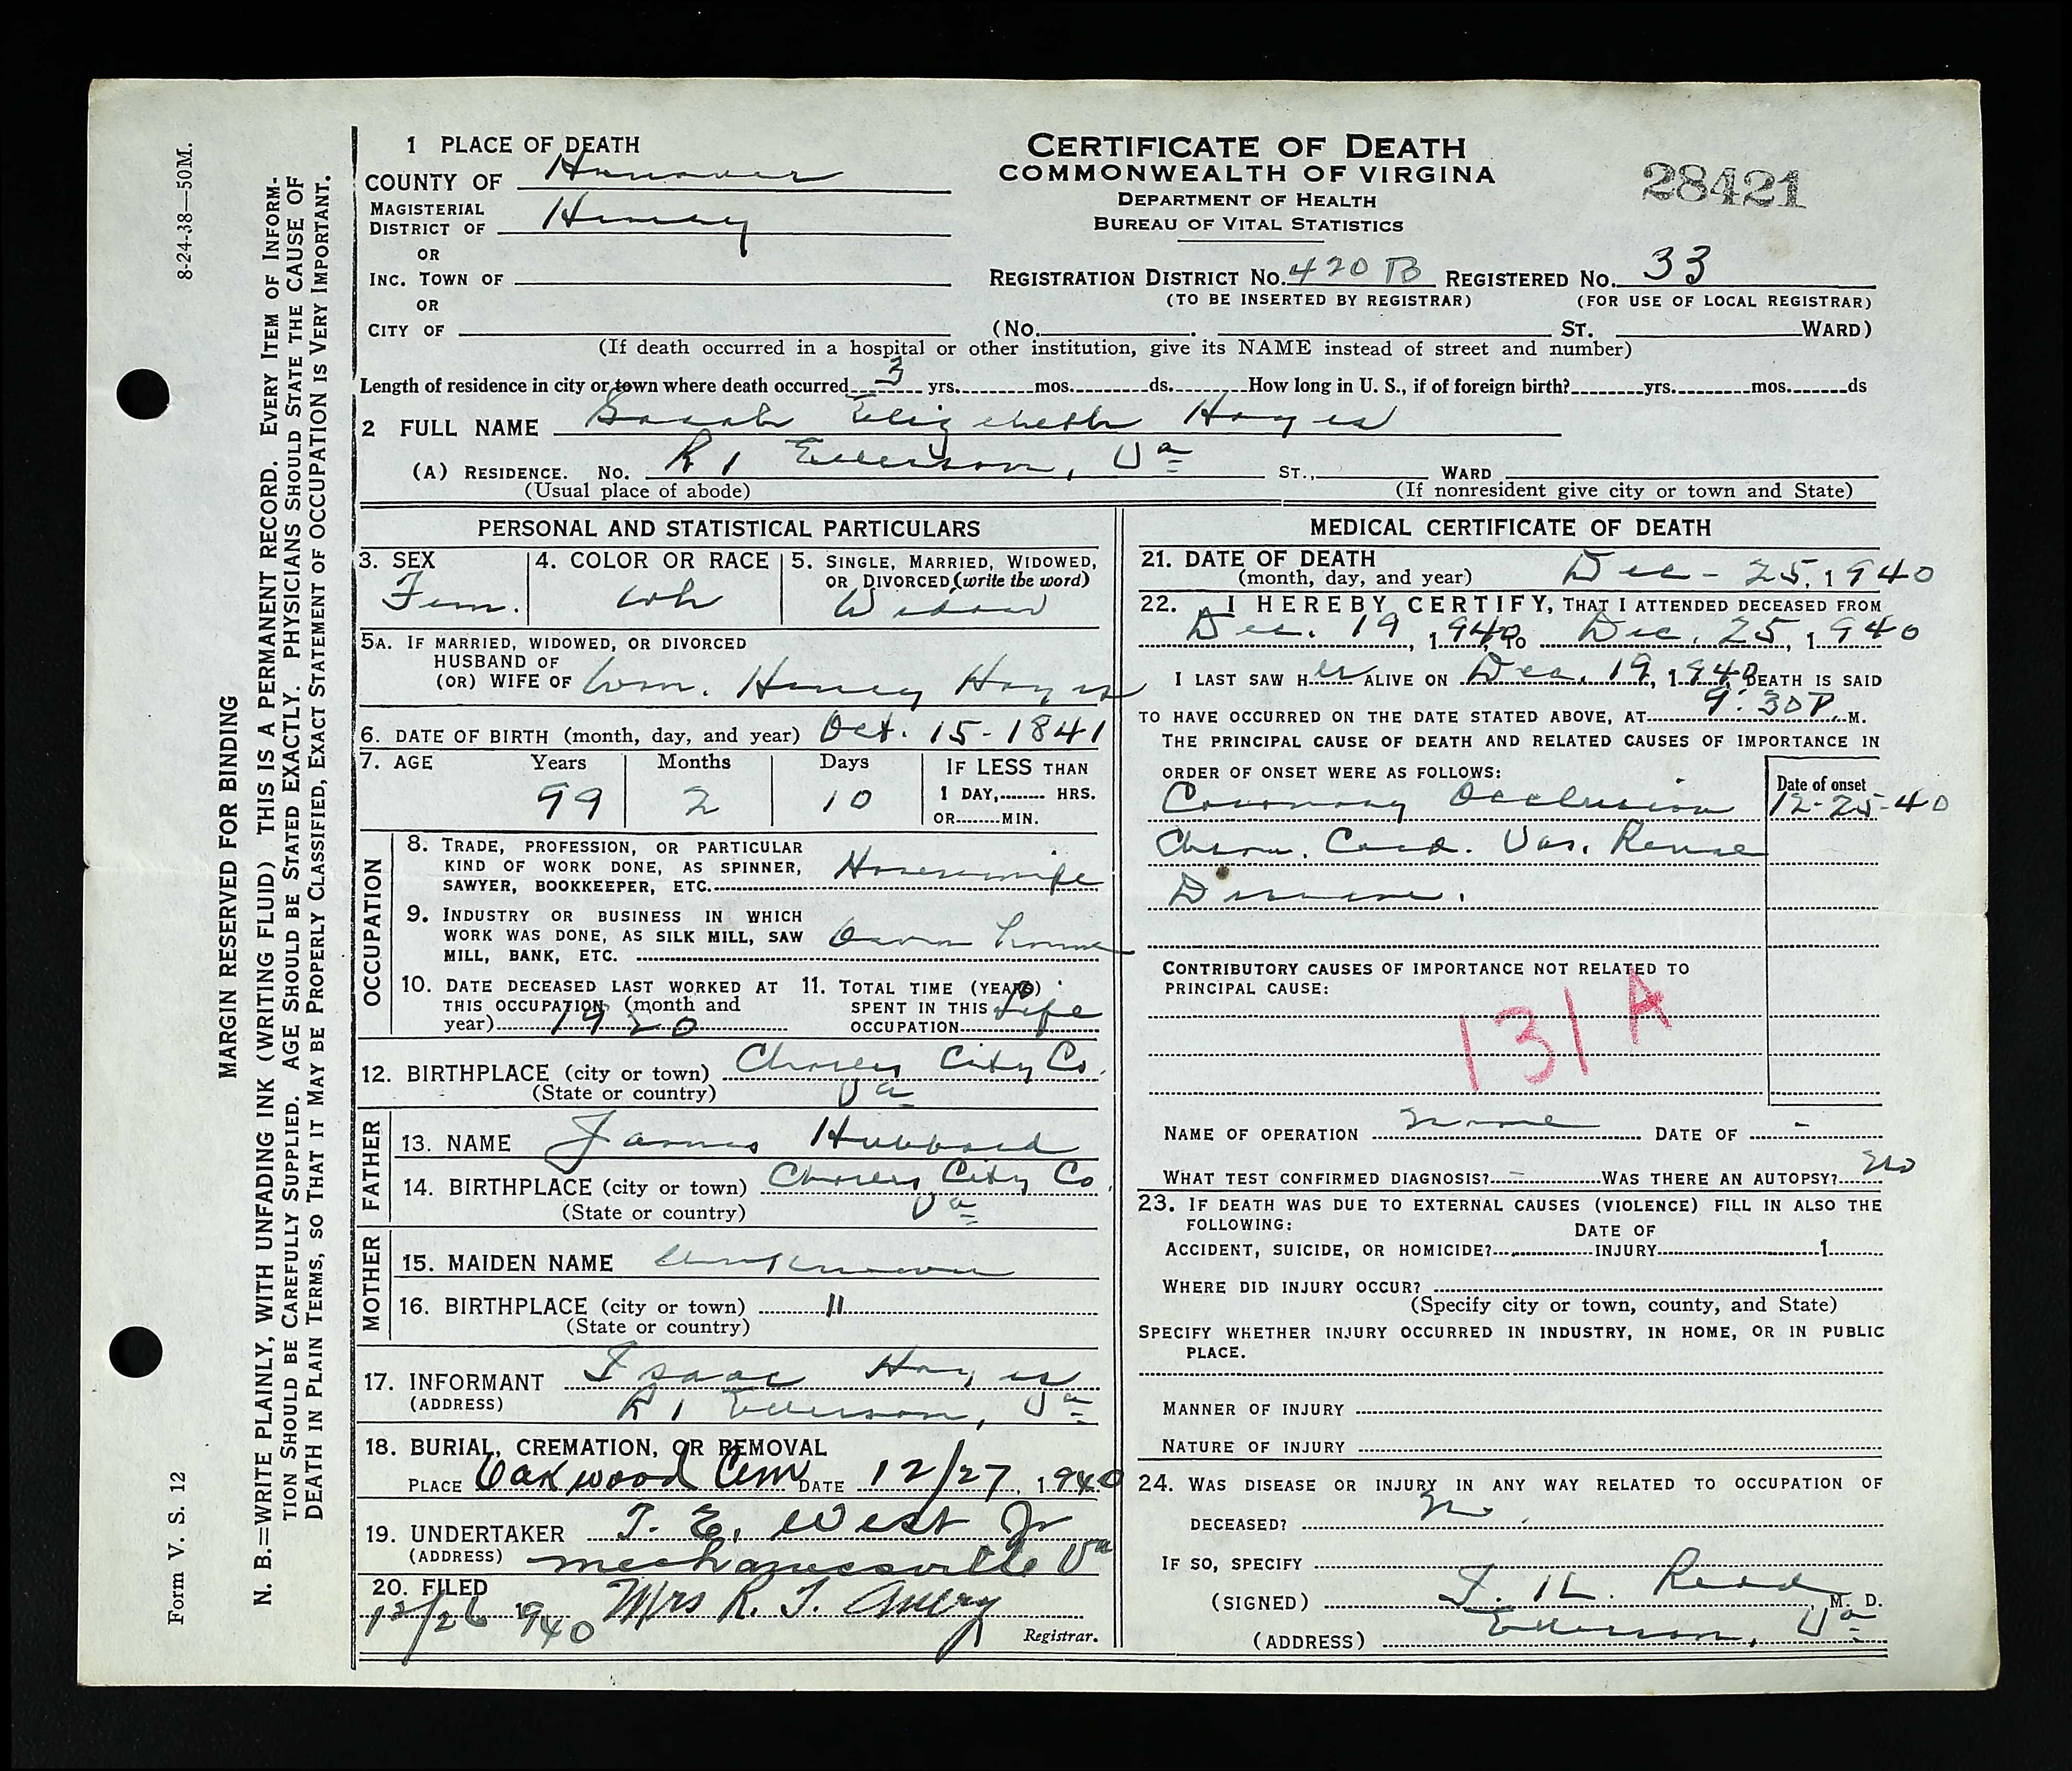 8-24-38—50M.
MARGIN RESERVED FOR BINDING
N. B.=WRITE PLAINLY, WITH UNFADING INK (WRITING FLUID) THIS IS A PERMANENT RECORD. EVERY ITEM OF INFORM-
TION SHOULD BE CAREFULLY SUPPLIED. AGE SHOULD BE STATED EXACTLY. PHYSICIANS SHOULD STATE THE CAUSE OF
DEATH IN PLAIN TERMS, SO THAT IT MAY BE PROPERLY CLASSIFIED, EXACT STATEMENT OF OCCUPATION IS VERY IMPORTANT.
Form V. S. 12
CERTIFICATE OF DEATH
COMMONWEALTH OF VIRGINA
DEPARTMENT OF HEALTH
BUREAU OF VITAL STATISTICS
28421
1 PLACE OF DEATH
COUNTY OF Hanover
MAGISTERIAL DISTRICT OF Henry
OR
INC. TOWN OF
OR
CITY OF
REGISTRATION DISTRICT No. 420 B REGISTERED No. 33
(TO BE INSERTED BY REGISTRAR) (FOR USE OF LOCAL REGISTRAR)
(No. ST. WARD)
(If death occurred in a hospital or other institution, give its NAME instead of street and number)
Length of residence in city or town where death occurred 3 yrs. mos. ds. How long in U. S., if of foreign birth? yrs. mos. ds
2 FULL NAME Sarah Elizabeth Hayes
(A) RESIDENCE. No. R 1 Ellerson, Va ST., WARD
(Usual place of abode) (If nonresident give city or town and State)
PERSONAL AND STATISTICAL PARTICULARS
3. SEX Fem.
4. COLOR OR RACE Wh
5. SINGLE, MARRIED, WIDOWED, OR DIVORCED (write the word) Widow
5A. IF MARRIED, WIDOWED, OR DIVORCED
HUSBAND OF
(OR) WIFE OF Wm. Henry Hayes
6. DATE OF BIRTH (month, day, and year) Oct. 15-1841
7. AGE Years 99 Months 2 Days 10 IF LESS THAN
1 DAY, HRS.
OR MIN.
OCCUPATION
8. TRADE, PROFESSION, OR PARTICULAR
KIND OF WORK DONE, AS SPINNER,
SAWYER, BOOKKEEPER, ETC. Housewife
9. INDUSTRY OR BUSINESS IN WHICH
WORK WAS DONE, AS SILK MILL, SAW
MILL, BANK, ETC. Own home
10. DATE DECEASED LAST WORKED AT
THIS OCCUPATION (month and
year) 1920
11. TOTAL TIME (YEARS)
SPENT IN THIS
OCCUPATION Life
12. BIRTHPLACE (city or town) Charles City Co.
(State or country) Va
FATHER
13. NAME James Hubbard
14. BIRTHPLACE (city or town) Charles City Co.
(State or country) Va
MOTHER
15. MAIDEN NAME Unknown
16. BIRTHPLACE (city or town) "
(State or country)
17. INFORMANT Isaac Hayes
(ADDRESS) R 1 Ellerson, Va
18. BURIAL, CREMATION, OR REMOVAL
PLACE Oakwood Cem DATE 12/27, 1940
19. UNDERTAKER T. E. West Jr
(ADDRESS) Mechanicsville Va
20. FILED
12/26 1940 Mrs R. T. Avery
Registrar.
MEDICAL CERTIFICATE OF DEATH
21. DATE OF DEATH
(month, day, and year) Dec - 25, 1940
22. I HEREBY CERTIFY, THAT I ATTENDED DECEASED FROM
Dec. 19, 1940, TO Dec. 25, 1940
I LAST SAW HER ALIVE ON Dec. 19, 1940 DEATH IS SAID
TO HAVE OCCURRED ON THE DATE STATED ABOVE, AT 9:30 P. M.
THE PRINCIPAL CAUSE OF DEATH AND RELATED CAUSES OF IMPORTANCE IN
ORDER OF ONSET WERE AS FOLLOWS:
Date of onset
Coronary Occlusion 12-25-40
Chron. Card. Vas. Renal
Disease.
CONTRIBUTORY CAUSES OF IMPORTANCE NOT RELATED TO
PRINCIPAL CAUSE:
131 A
NAME OF OPERATION None DATE OF -
WHAT TEST CONFIRMED DIAGNOSIS? - WAS THERE AN AUTOPSY? No
23. IF DEATH WAS DUE TO EXTERNAL CAUSES (VIOLENCE) FILL IN ALSO THE
FOLLOWING:
ACCIDENT, SUICIDE, OR HOMICIDE? DATE OF INJURY 1
WHERE DID INJURY OCCUR?
(Specify city or town, county, and State)
SPECIFY WHETHER INJURY OCCURRED IN INDUSTRY, IN HOME, OR IN PUBLIC
PLACE.
MANNER OF INJURY
NATURE OF INJURY
24. WAS DISEASE OR INJURY IN ANY WAY RELATED TO OCCUPATION OF
DECEASED? No.
IF SO, SPECIFY
(SIGNED) Reed, M. D.
(ADDRESS) Ellerson, Va